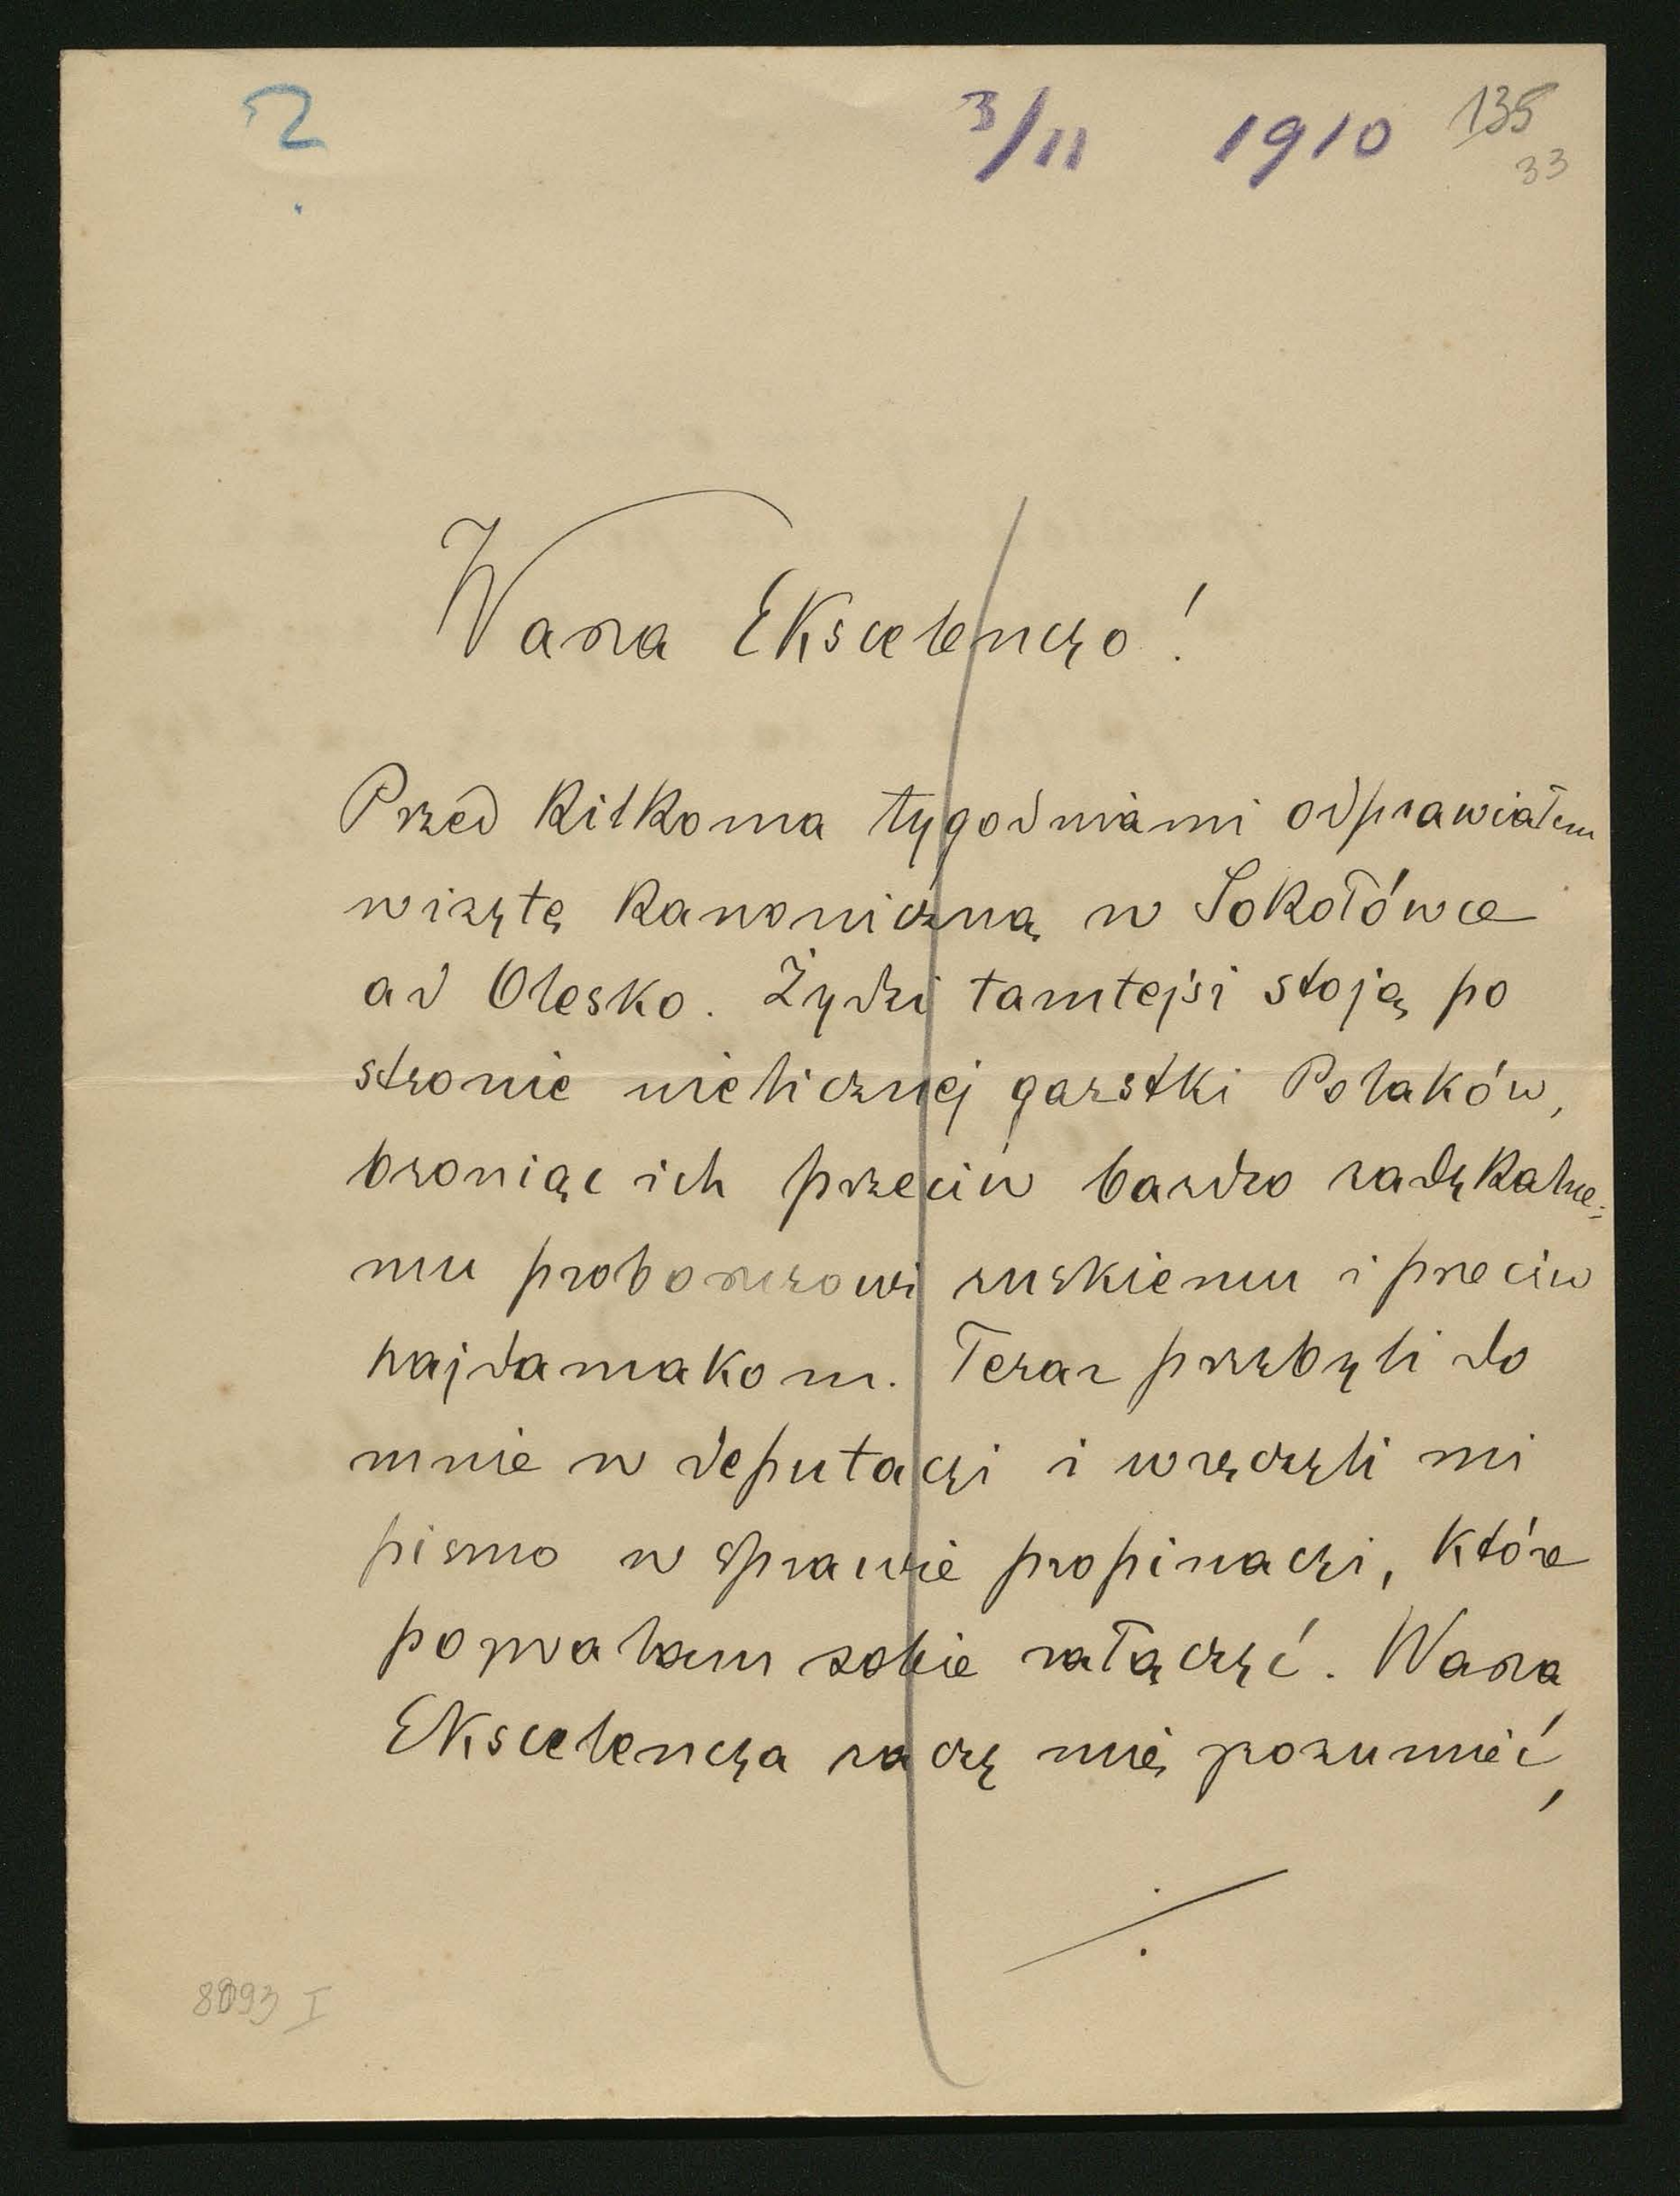 ?
3/11 1910 135
33
Wasza Ekscelencyo!
Przed kilkoma tygodniami odprawiałem
wizytę kanoniczną w Sokołówce
ad Olesko. Żydzi tamtejsi stoją po
stronie nielicznej garstki Polaków,
broniąc ich przeciw bardzo radykalne-
mu proboszczowi ruskiemu i przeciw
hajdamakom. Teraz przybyli do
mnie w deputacyi i wręczyli mi
pismo w sprawie propinacyi, które
pozwalam sobie załączyć. Wasza
Ekscelencya raczy mię zrozumieć,
./.
8093 I